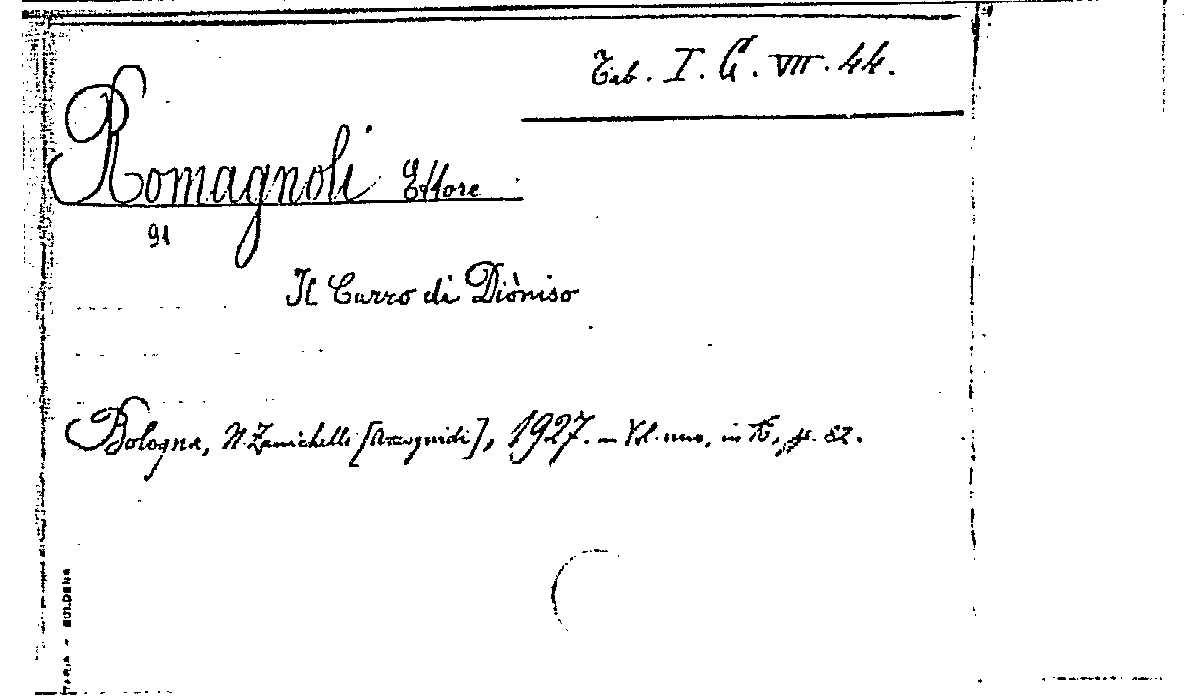 Tab. I. G. VII. 44.
Romagnoli Ettore
91
Il Carro di Diòniso
Bologna, N. Zanichelli [Azzoguidi], 1927. – Vol. uno, in 16, p. 82.